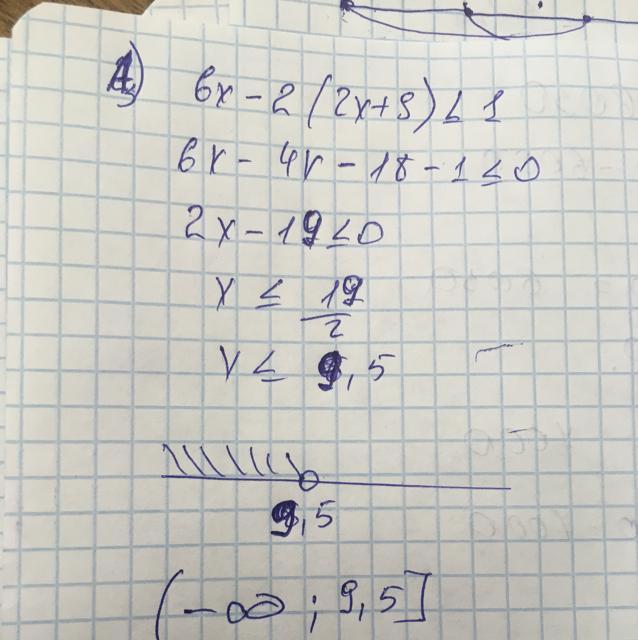 1) 6x - 2(2x+9) ≤ 1
6x - 4x - 18 - 1 ≤ 0
2x - 19 ≤ 0
x ≤ 19/2
x ≤ 9,5
9,5
(-∞ ; 9,5]